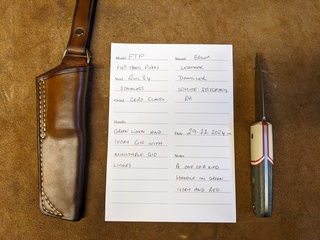 Model FTP
Full Tang Puukko
Steel RWL 34
Stainless
Grind Zero Grind
Handle
Green Linen and
Ivory G10 with
Multiple G10
Liners
Sheath Brown
Leather
Dangler
White Stitching
RH
Date 29.11.2024
Notes
A one of a kind
handle in green
ivory and red